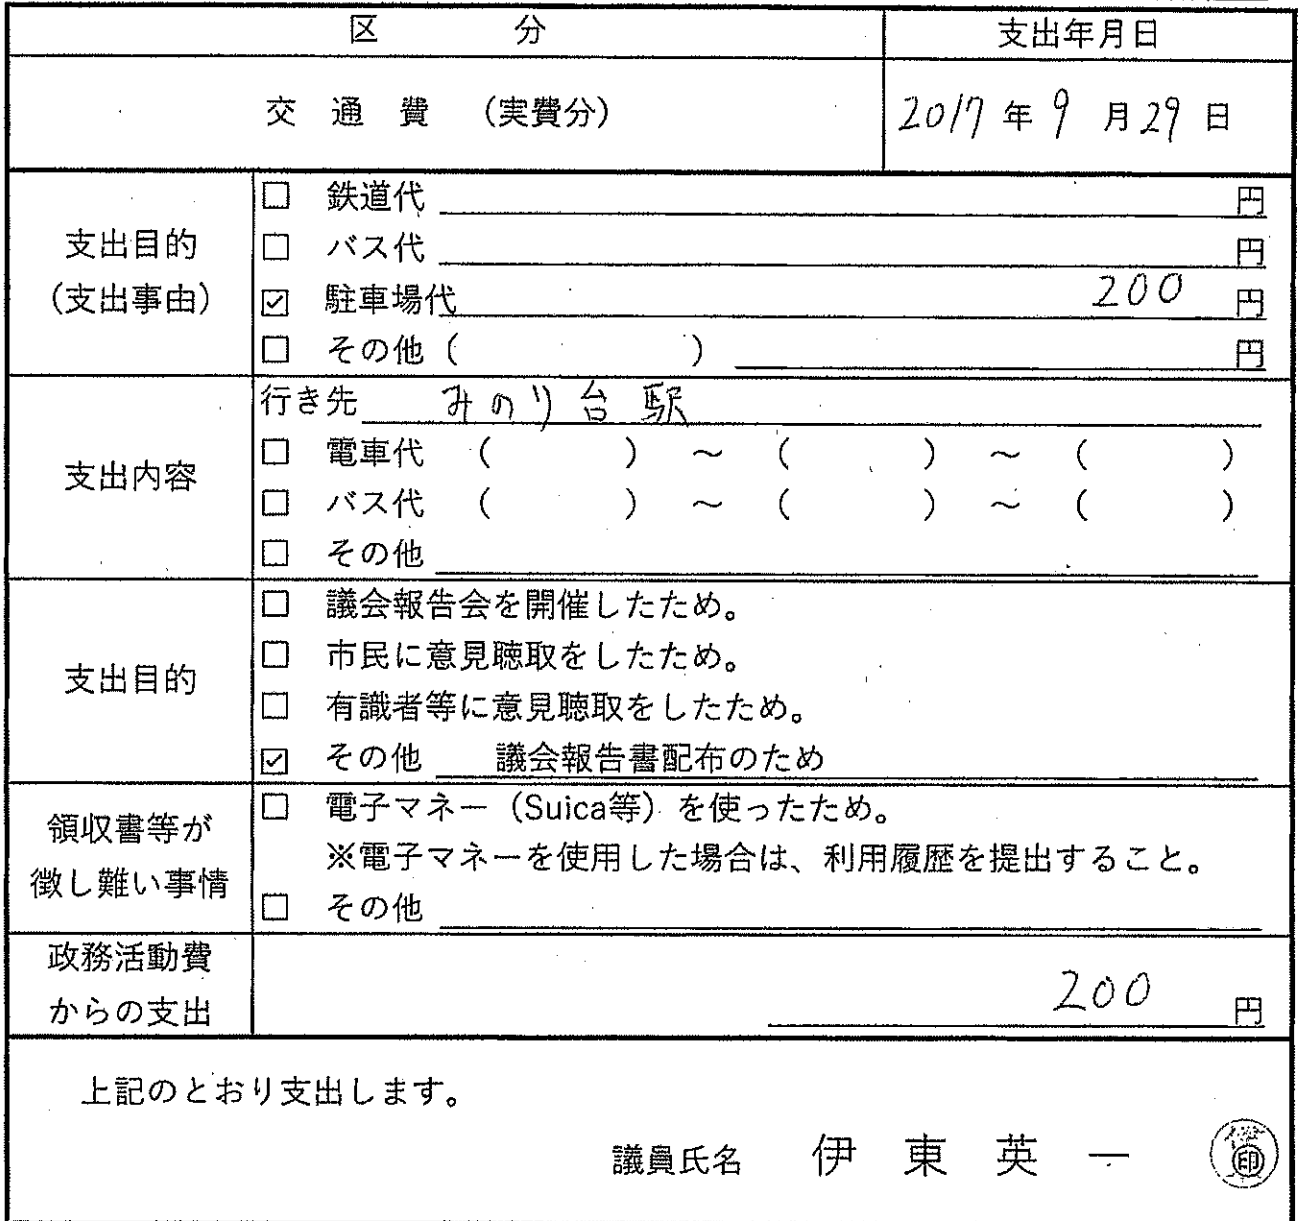 区 分 支出年月日
交 通 費 （実費分） 2017 年 9 月 29 日
支出目的
（支出事由）
□ 鉄道代 円
□ バス代 円
☑ 駐車場代 200 円
□ その他（ ） 円
支出内容
行き先 みのり台駅
□ 電車代 （ ） ～ （ ） ～ （ ）
□ バス代 （ ） ～ （ ） ～ （ ）
□ その他
支出目的
□ 議会報告会を開催したため。
□ 市民に意見聴取をしたため。
□ 有識者等に意見聴取をしたため。
☑ その他 議会報告書配布のため
領収書等が
徴し難い事情
□ 電子マネー（Suica等）を使ったため。
※電子マネーを使用した場合は、利用履歴を提出すること。
□ その他
政務活動費
からの支出
200 円
上記のとおり支出します。
議員氏名 伊 東 英 一 印